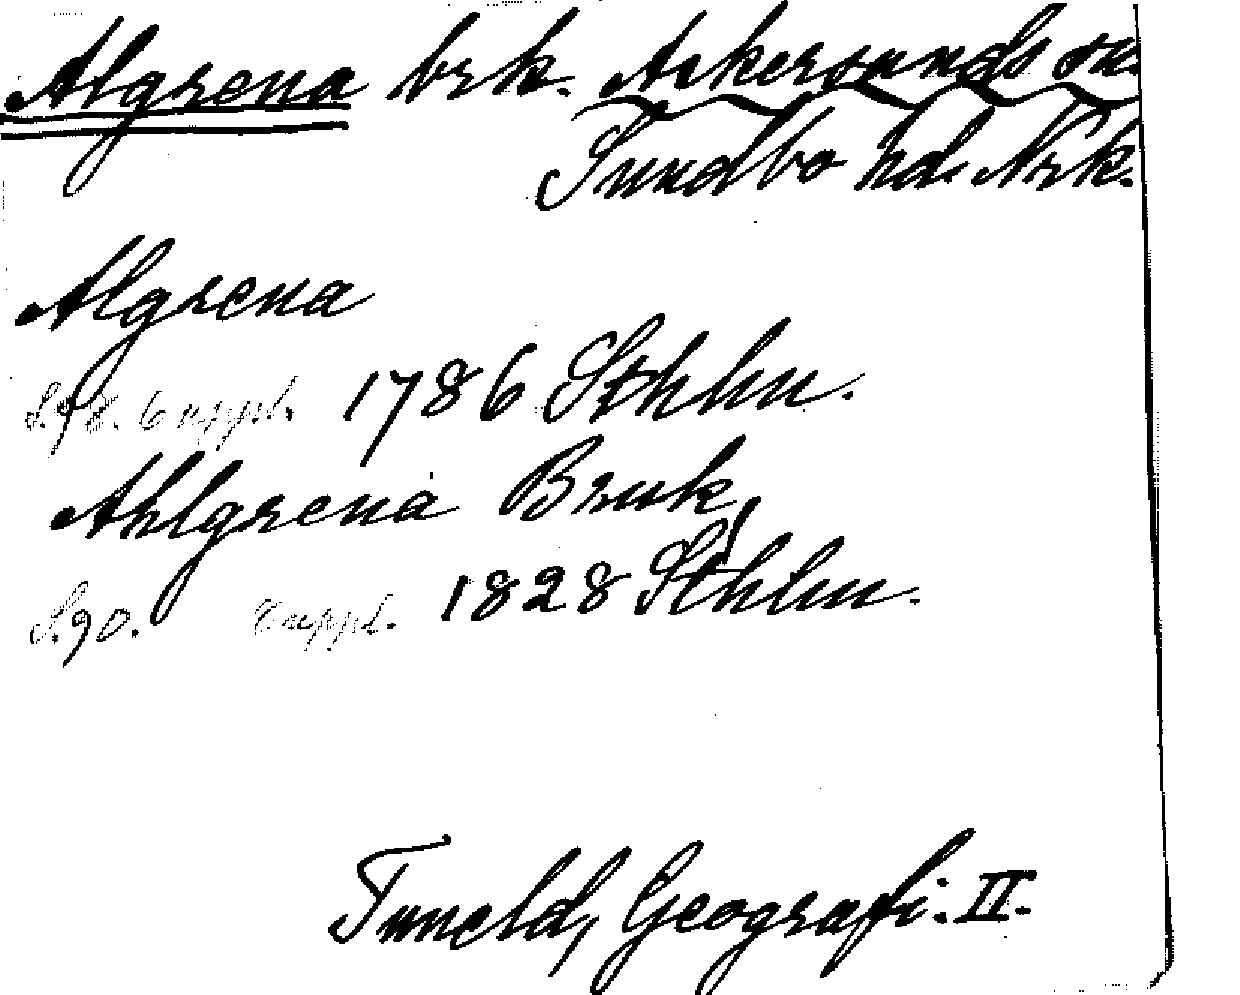 Algrena brk. Askersunds sn.
Sundbo hd. Nrk.
Algrena
S. 98. 6 uppl. 1786 Sthlm.
Ahlgrena Bruk,
S. 90. 8 uppl. 1828 Sthlm.
Tuneld, Geografi. II.